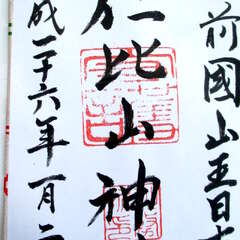 前國山王日
仁比山神
成二十六年一月二